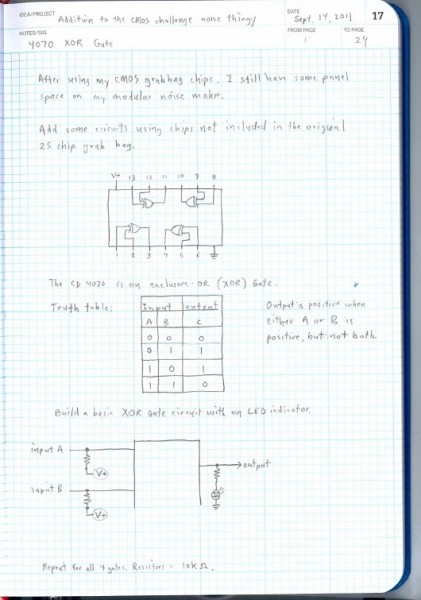 IDEA/PROJECT
Addition to the CMOS challenge noise thingy
DATE
Sept. 14, 2011
17
NOTES/SIG
4070 XOR Gate
FROM PAGE
1
TO PAGE
29
After using my CMOS grabbag chips, I still have some panel
space on my modular noise maker.
Add some circuits using chips not included in the original
25 chip grab bag.
V+ 13 12 11 10 9 8
1 2 3 4 5 6
The CD 4070 is an exclusive-OR (XOR) Gate.
Truth table:
input output
A B C
0 0 0
0 1 1
1 0 1
1 1 0
Output is positive when
either A or B is
positive, but not both.
Build a basic XOR Gate circuit with an LED indicator.
input A
V+
input B
V+
output
Repeat for all 4 gates. Resistors = 10K Ω.